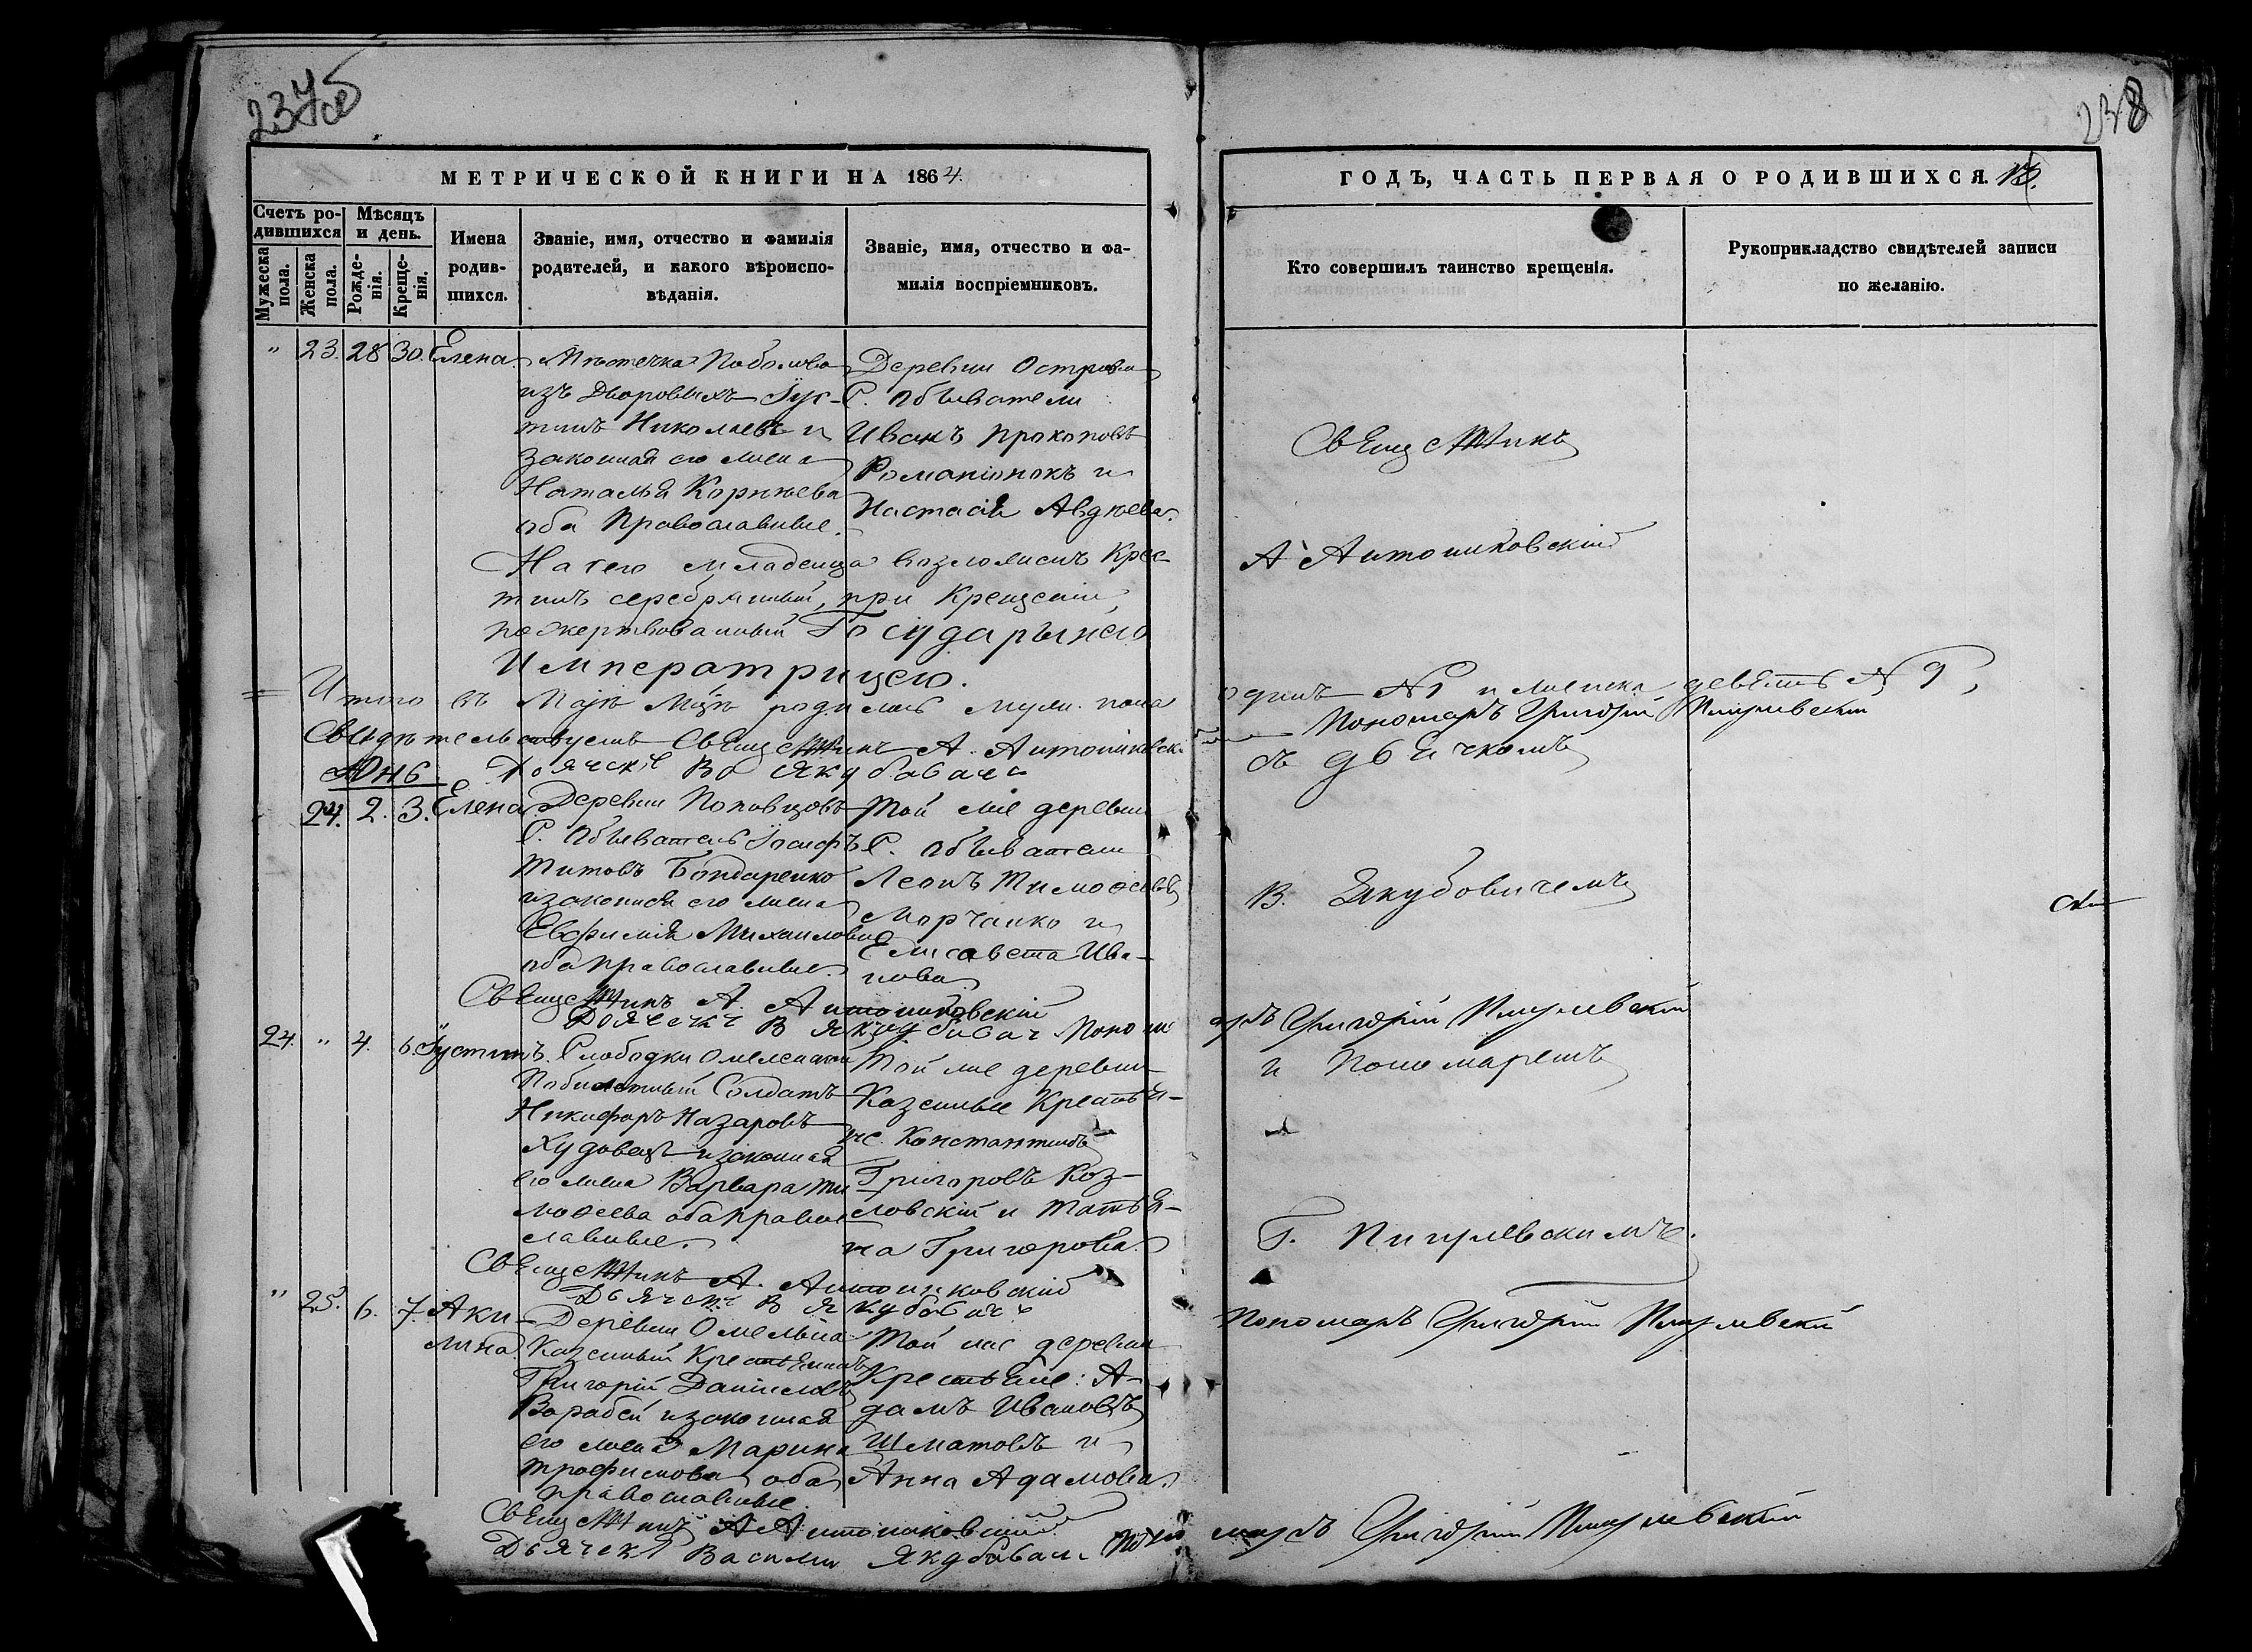 237об
238
МЕТРИЧЕСКОЙ КНИГИ НА 1864.
ГОДЪ, ЧАСТЬ ПЕРВАЯ О РОДИВШИХСЯ.
Счетъ ро-
дившихся
Мѣсяцъ
и день.
Мужеска
пола.
Женска
пола.
Рожде-
нія.
Креще-
нія.
Имена
родив-
шихся.
Званіе, имя, отчество и фамилія
родителей, и какого вѣроиспо-
вѣданія.
Званіе, имя, отчество и фа-
милія воспріемниковъ.
Кто совершилъ таинство крещенія.
Рукоприкладство свидѣтелей записи
по желанію.
" 23. 28 30. Елена.
Мѣстечка Поболова
изъ Дворовыхъ Іус-
тинъ Николаевъ и
законная его жена
Наталья Корнѣева
оба Православные.
Деревни Острова
С. Обыватели
Иванъ Прокоповъ
Романюнокъ и
Настасія Авдѣева.
На сего младенца возложенъ Крес-
тикъ серебряный, при Крещеніи,
пожертвованный Государынею
Императрицею.
Священникъ
А Антониковскій
Итого въ Маѣ Мцѣ родилось муж. пола
одинъ №1 и женска девять №9,
Свидѣтельствуемъ Священникъ А. Антониковск
Дьячекъ В Якубович
Пономарь Григорій
съ дьячкомъ
В. Якубовичемъ
Юнь
24. 2. 3. Елена.
Деревни Поповцовъ
С. Обыватель Іосифъ
Титовъ Бондаренко
и законная его жена
Евфимія Михаилова
оба православные.
Той же деревни
С. Обыватели
Леонъ Тимофеевъ
Морчанко и
Елисавета Ива-
нова
Священникъ А. Антониковскій
Дьячекъ В Якубович Поном
арь Григорій
24. " 4. 6. Іустинъ.
Слободки Омельной
Побилетный Солдатъ
Никифоръ Назаровъ
Худовецъ и законная
его жена Варвара Ти-
мофеева оба право-
славные.
Той же деревни
Казенные Крестья-
не Константинъ
Григоровъ Коз-
ловскій и Татья-
на Григорова.
и Пономаремъ
Г.
Священникъ А. Антониковскій
Дьячекъ В Якубович
Пономарь Григорій
" 25. 6. 7. Аки-
лина.
Деревни Омельна
Казенный Крестьянинъ
Григорій Даниловъ
Воробей и законная
его жена Марина
Трофимова оба
православные.
Той же деревни
Крестьяне: А-
дамъ Ивановъ
Шматовъ и
Анна Адамова.
Священникъ А Антониковскій
Дьячекъ Василій Якубович Поно
марь Григорій